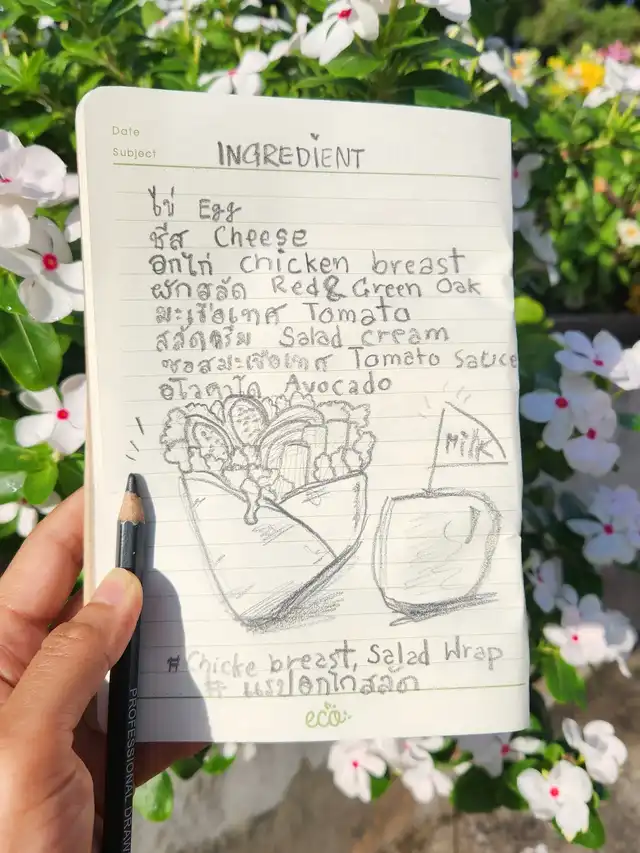 Date
Subject
INGREDIENT
ไข่ Egg
ชีส Cheese
อกไก่ chicken breast
ผักสลัด Red & Green Oak
มะเขือเทศ Tomato
สลัดครีม Salad cream
ซอสมะเขือเทศ Tomato Sauce
อโวคาโด Avocado
Milk
# Chicke breast, Salad Wrap
# แรปอกไก่สลัด
eco
PROFESSIONAL DRAW